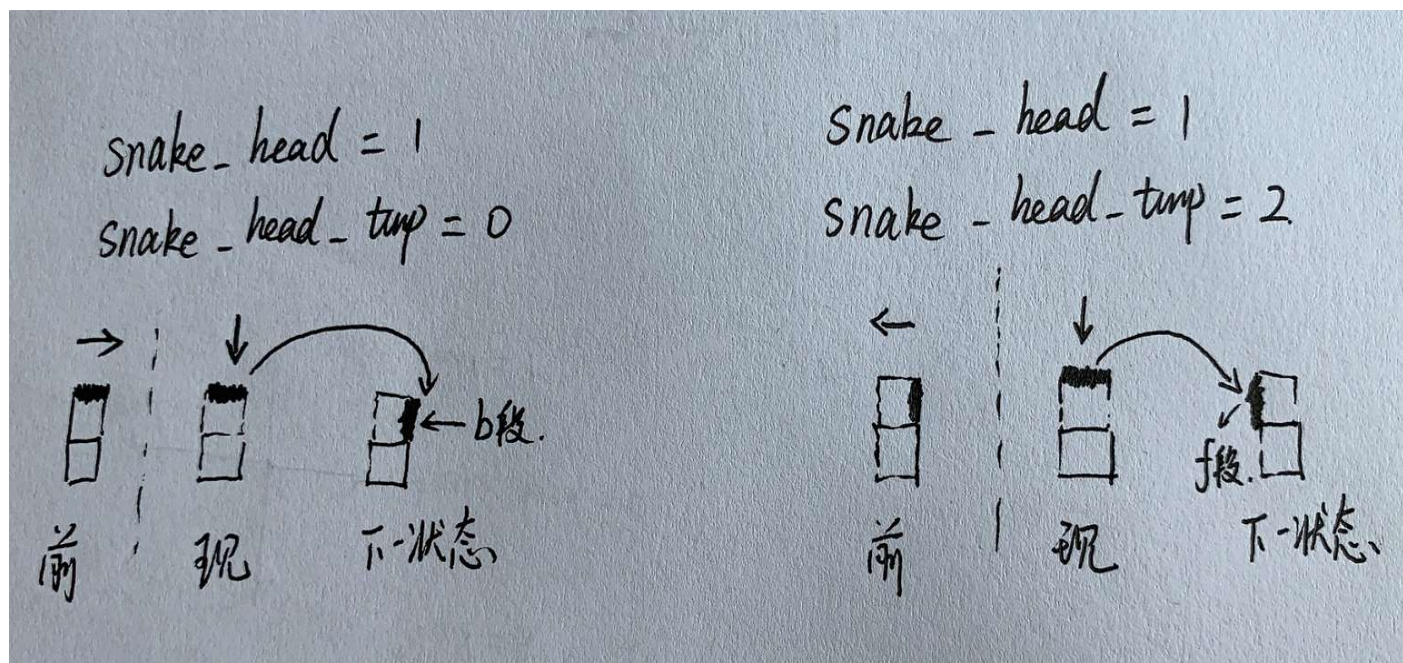 snake_head = 1
snake_head_tmp = 0
b段.
前 现 下一状态、
snake_head = 1
snake_head_tmp = 2.
f段.
前 现 下一状态、